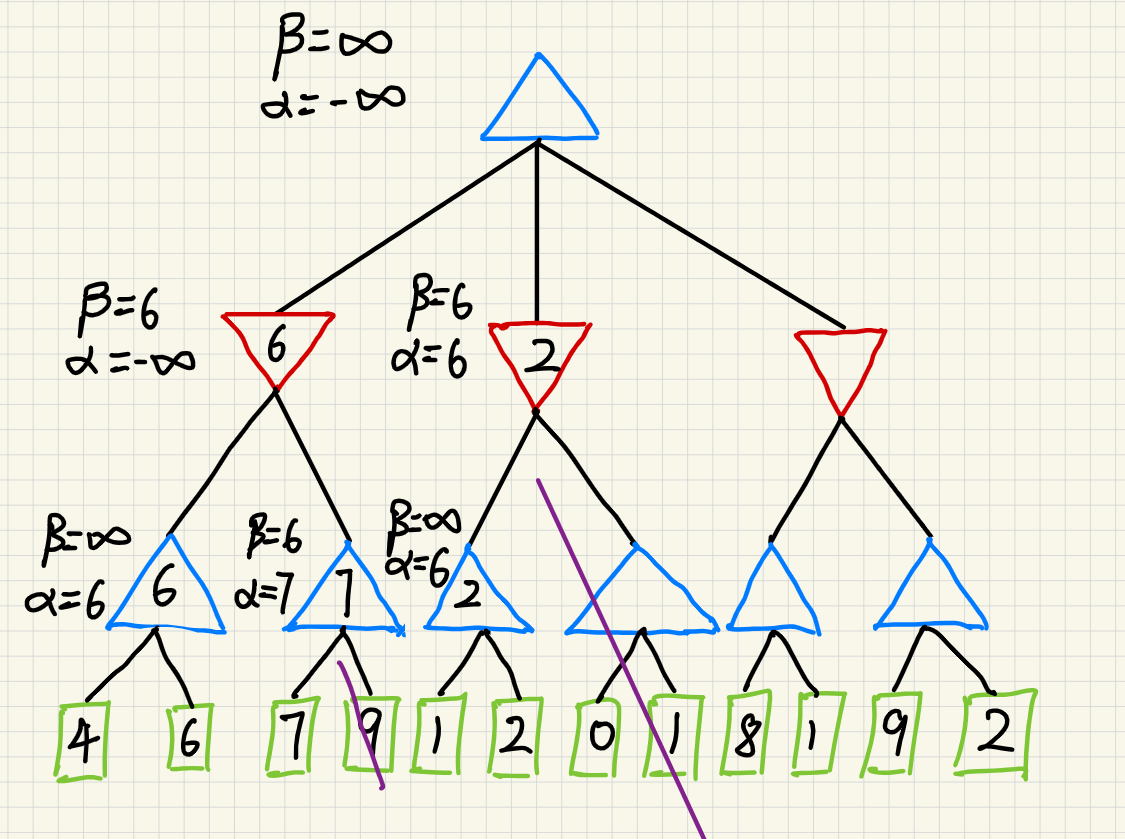 β=∞
α=-∞
β=6
α=-∞
6
β=6
α=6
2
β=∞
α=6
6
β=6
α=7
7
β=∞
α=6
2
4
6
7
9
1
2
0
1
8
1
9
2